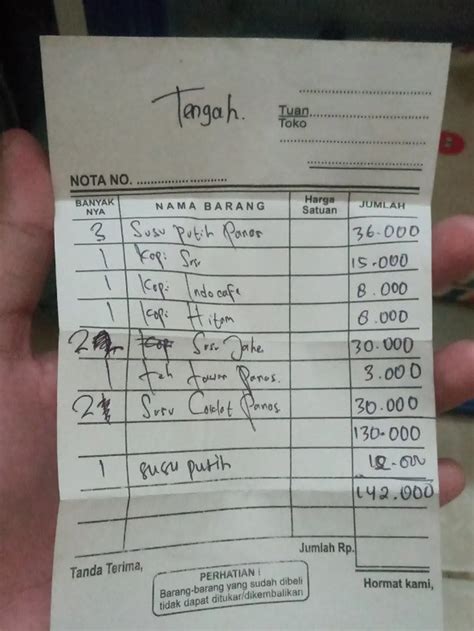 Tengah.
Tuan
Toko
NOTA NO.
BANYAK NYA NAMA BARANG Harga Satuan JUMLAH
3 Susu Putih Panas 36.000
1 Kopi Susu 15.000
1 Kopi Indocafe 8.000
1 Kopi Hitam 8.000
2 Susu Jahe 30.000
1 Teh tawar Panas. 3.000
2 Susu Coklat Panas 30.000
130.000
1 susu putih 12.000
142.000
Jumlah Rp.
Tanda Terima,
PERHATIAN !
Barang-barang yang sudah dibeli
tidak dapat ditukar/dikembalikan
Hormat kami,